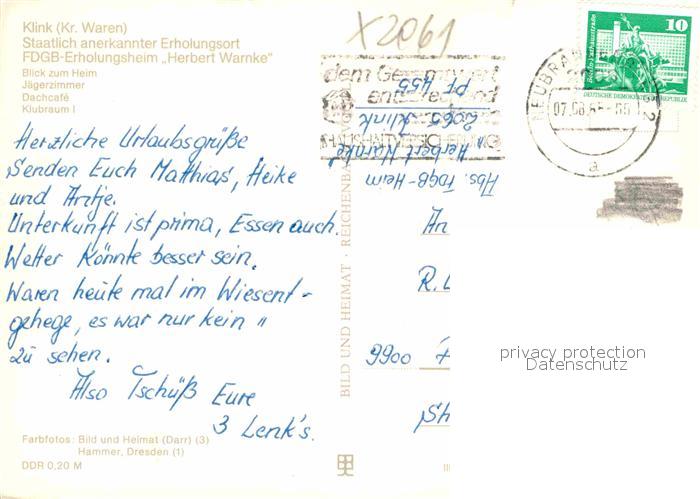 Klink (Kr. Waren)
Staatlich anerkannter Erholungsort
FDGB-Erholungsheim „Herbert Warnke"
Blick zum Heim
Jägerzimmer
Dachcafé
Klubraum I
Herzliche Urlaubsgrüße
Senden Euch Matthias, Heike
und Antje.
Unterkunft ist prima, Essen auch.
Wetter könnte besser sein.
Waren heute mal im Wiesent-
gehege, es war nur kein "
zu sehen.
Also Tschüß Eure
3 Lenk's.
Farbfotos: Bild und Heimat (Darr) (3)
Hammer, Dresden (1)
DDR 0,20 M
BILD UND HEIMAT · REICHENBA
X2061
Abs. FDGB-Heim
"Herbert Warnke"
2065 Klink
PF 455
10
DEUTSCHE DEMOKRATISCHE REPUBLIK
a
An
R. L
9900
privacy protection
Datenschutz